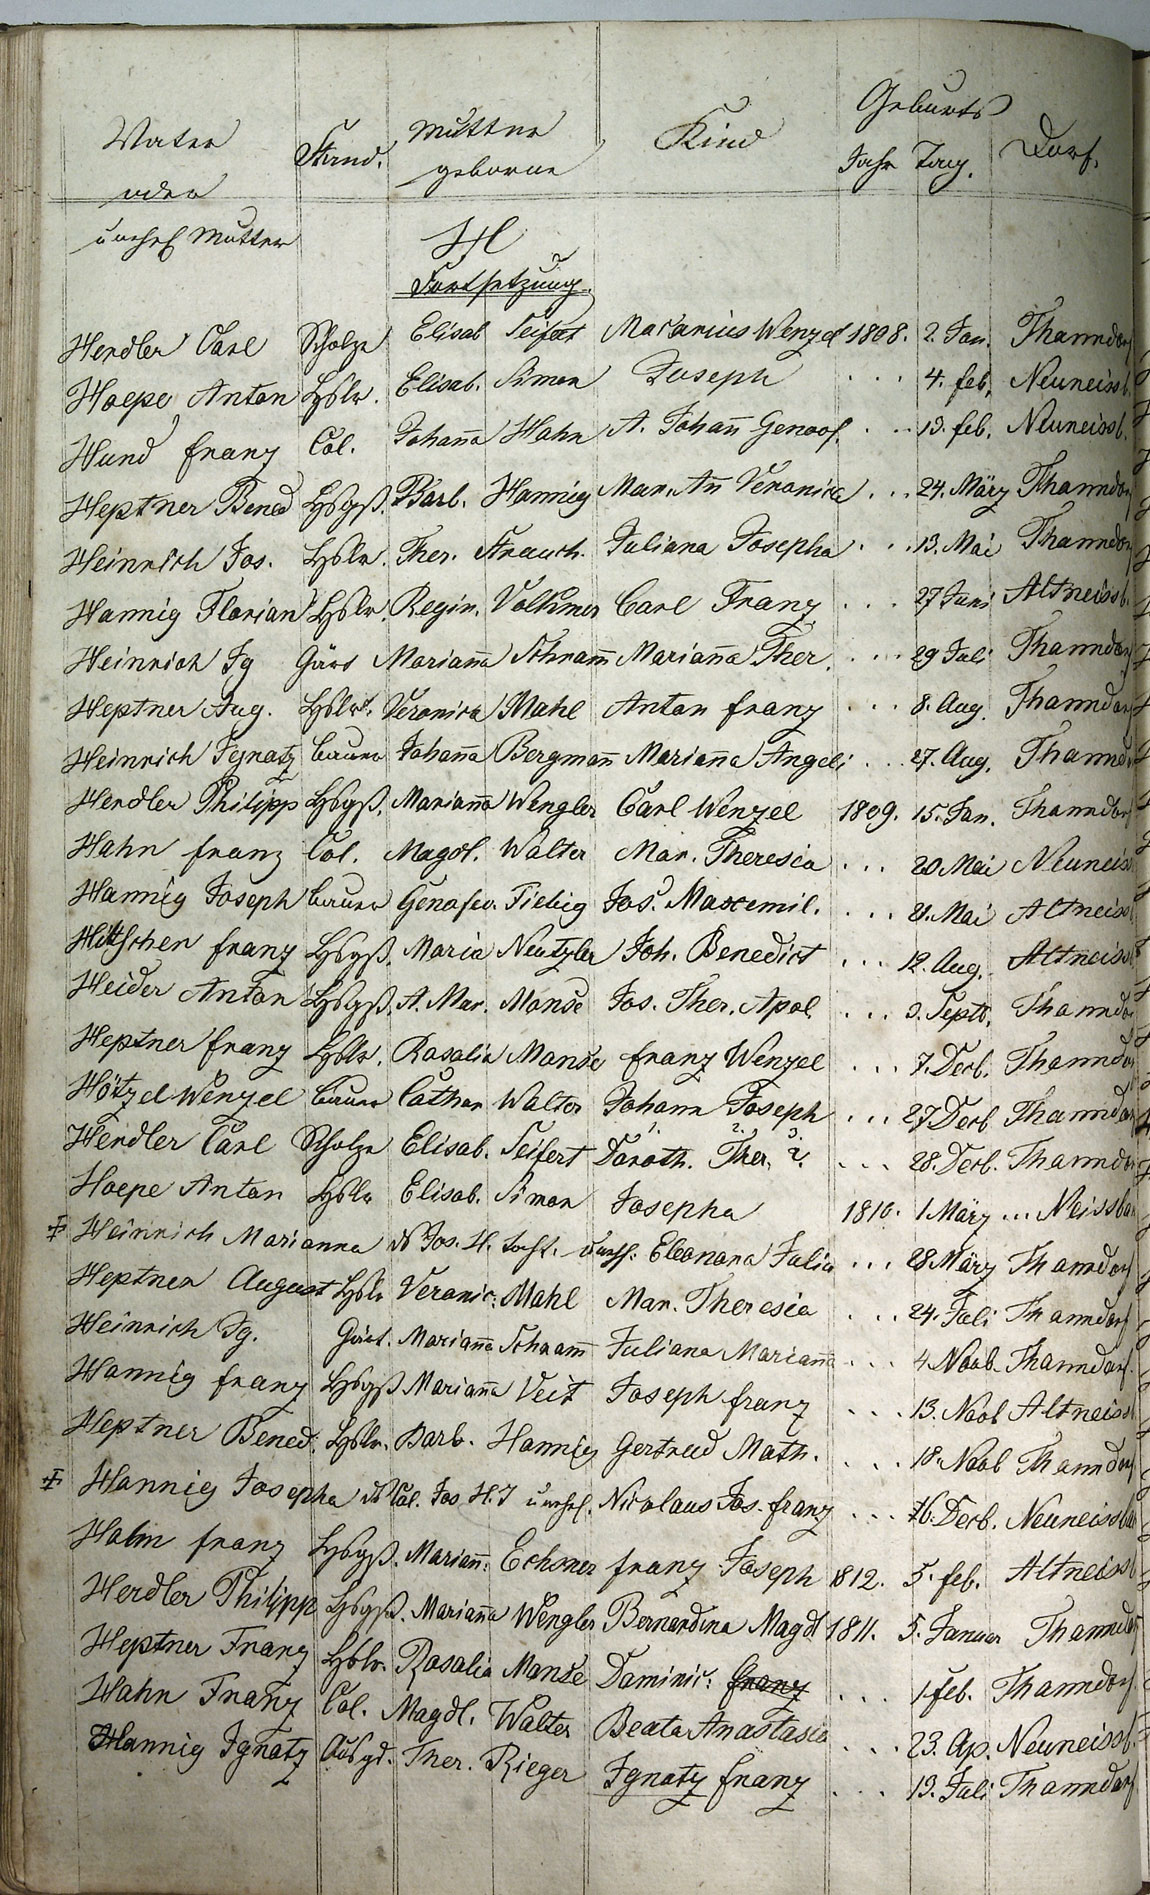 Vater Stand. Mutter Kind Geburts Dorf.
oder geborne Jahr Tag.
unehel Mutter
H
Fortsetzung.
Herdler Carl Scholze Elisab Seifert Macarius Wenzel 1808. 2. Jan. Thanndorf
Hoepe Anton Hslr. Elisab. Simon Joseph . . . 4. feb. Neuneissb.
Hund franz Col. Johaña Hahn A. Johañ Genoof. . . . 13. feb. Neuneissb.
Heptner Bened Hsgß. Barb. Hannig Mar. Añ Veronica . . . 24. März Thanndorf
Heinrich Jos. Hslr. Ther. Strauch. Juliana Josepha . . . 13. Mai Thanndorf
Hannig Florian Hslr. Regin. Volkmer Carl Franz . . . 27 Juni Altneissb.
Heinrich Ig Gärs Mariaña Schram̃ Mariaña Ther. . . . 29 Juli Thanndorf
Heptner Aug. Hslr. Veronica Mahl Anton franz . . . 8. Aug. Thanndorf
Heinrich Ignatz bauer Johaña Bergmañ Mariaña Angeli . . . 27. Aug. Thannd
Herdler Philipp Hsgß. Mariaña Wengler Carl Wenzel 1809. 15. Jan. Thanndorf
Hahn franz Col. Magdl. Walter Mar. Theresia . . . 20 Mai Neuneiss
Hannig Joseph bauer Genofev. Fiebig Jos. Maxemil. . . . 21. Mai Altneiss
Hittschen franz Hsgß. Maria Neutzler Joh. Benedict . . . 12. Aug. Altneiss
Heider Anton Hsgß. A. Mar. Monse Jos. Ther. Apol. . . . 3. Septb. Thanndo
Heptner franz Hslr. Rosalia Monse franz Wenzel . . . 7. Decb. Thanndor
Hötzel Wenzel bauer Cathar Walter Johann Joseph . . . 27 Decb Thanndor
Herdler Carl Scholze Elisab. Seifert Doroth. Ther. . . . 28. Decb. Thanndor
Hoepe Anton Hslr Elisab. Simon Josepha 1810. 1 März ... Neissba
Heinrich Marianna Jos. H. Tocht. unehl. Eleonora Julia . . . 28 März Thanndorf
Heptner August Hslr Veronic: Mahl Mar. Theresia . . . 24. Juli Thanndorf
Heinrich Ig. Gärt. Mariaña Schram̃ Juliana Mariaña . . . 4 Novb. Thanndorf.
Hannig franz Hsgß Mariaña Veit Joseph franz . . . 13. Novb Altneiss
Heptner Bened. Hslr. Barb. Hannig Gertrud Math. . . . 18. Novb Thanndorf
Hannig Josepha Col. Jos. H. T unehel. Nicolaus Jos. franz . . . 16. Decb. Neuneissba
Halm franz Hsgß. Mariañ: Echsner franz Joseph 1812. 5. feb. Altneissb
Herdler Philipp Hsgß. Mariaña Wengler Bernardina Magdl 1811. 5. Januar Thanndorf
Heptner Franz Hslr. Rosalia Monse Dominic: franz . . . 1 feb. Thanndorf
Hahn Franz Col. Magdl. Walter Beata Anastasia . . . 23. Ap. Neuneissb.
Hannig Ignatz Ausgd. Ther. Rieger Ignatz franz . . . 13. Juli Thanndorf